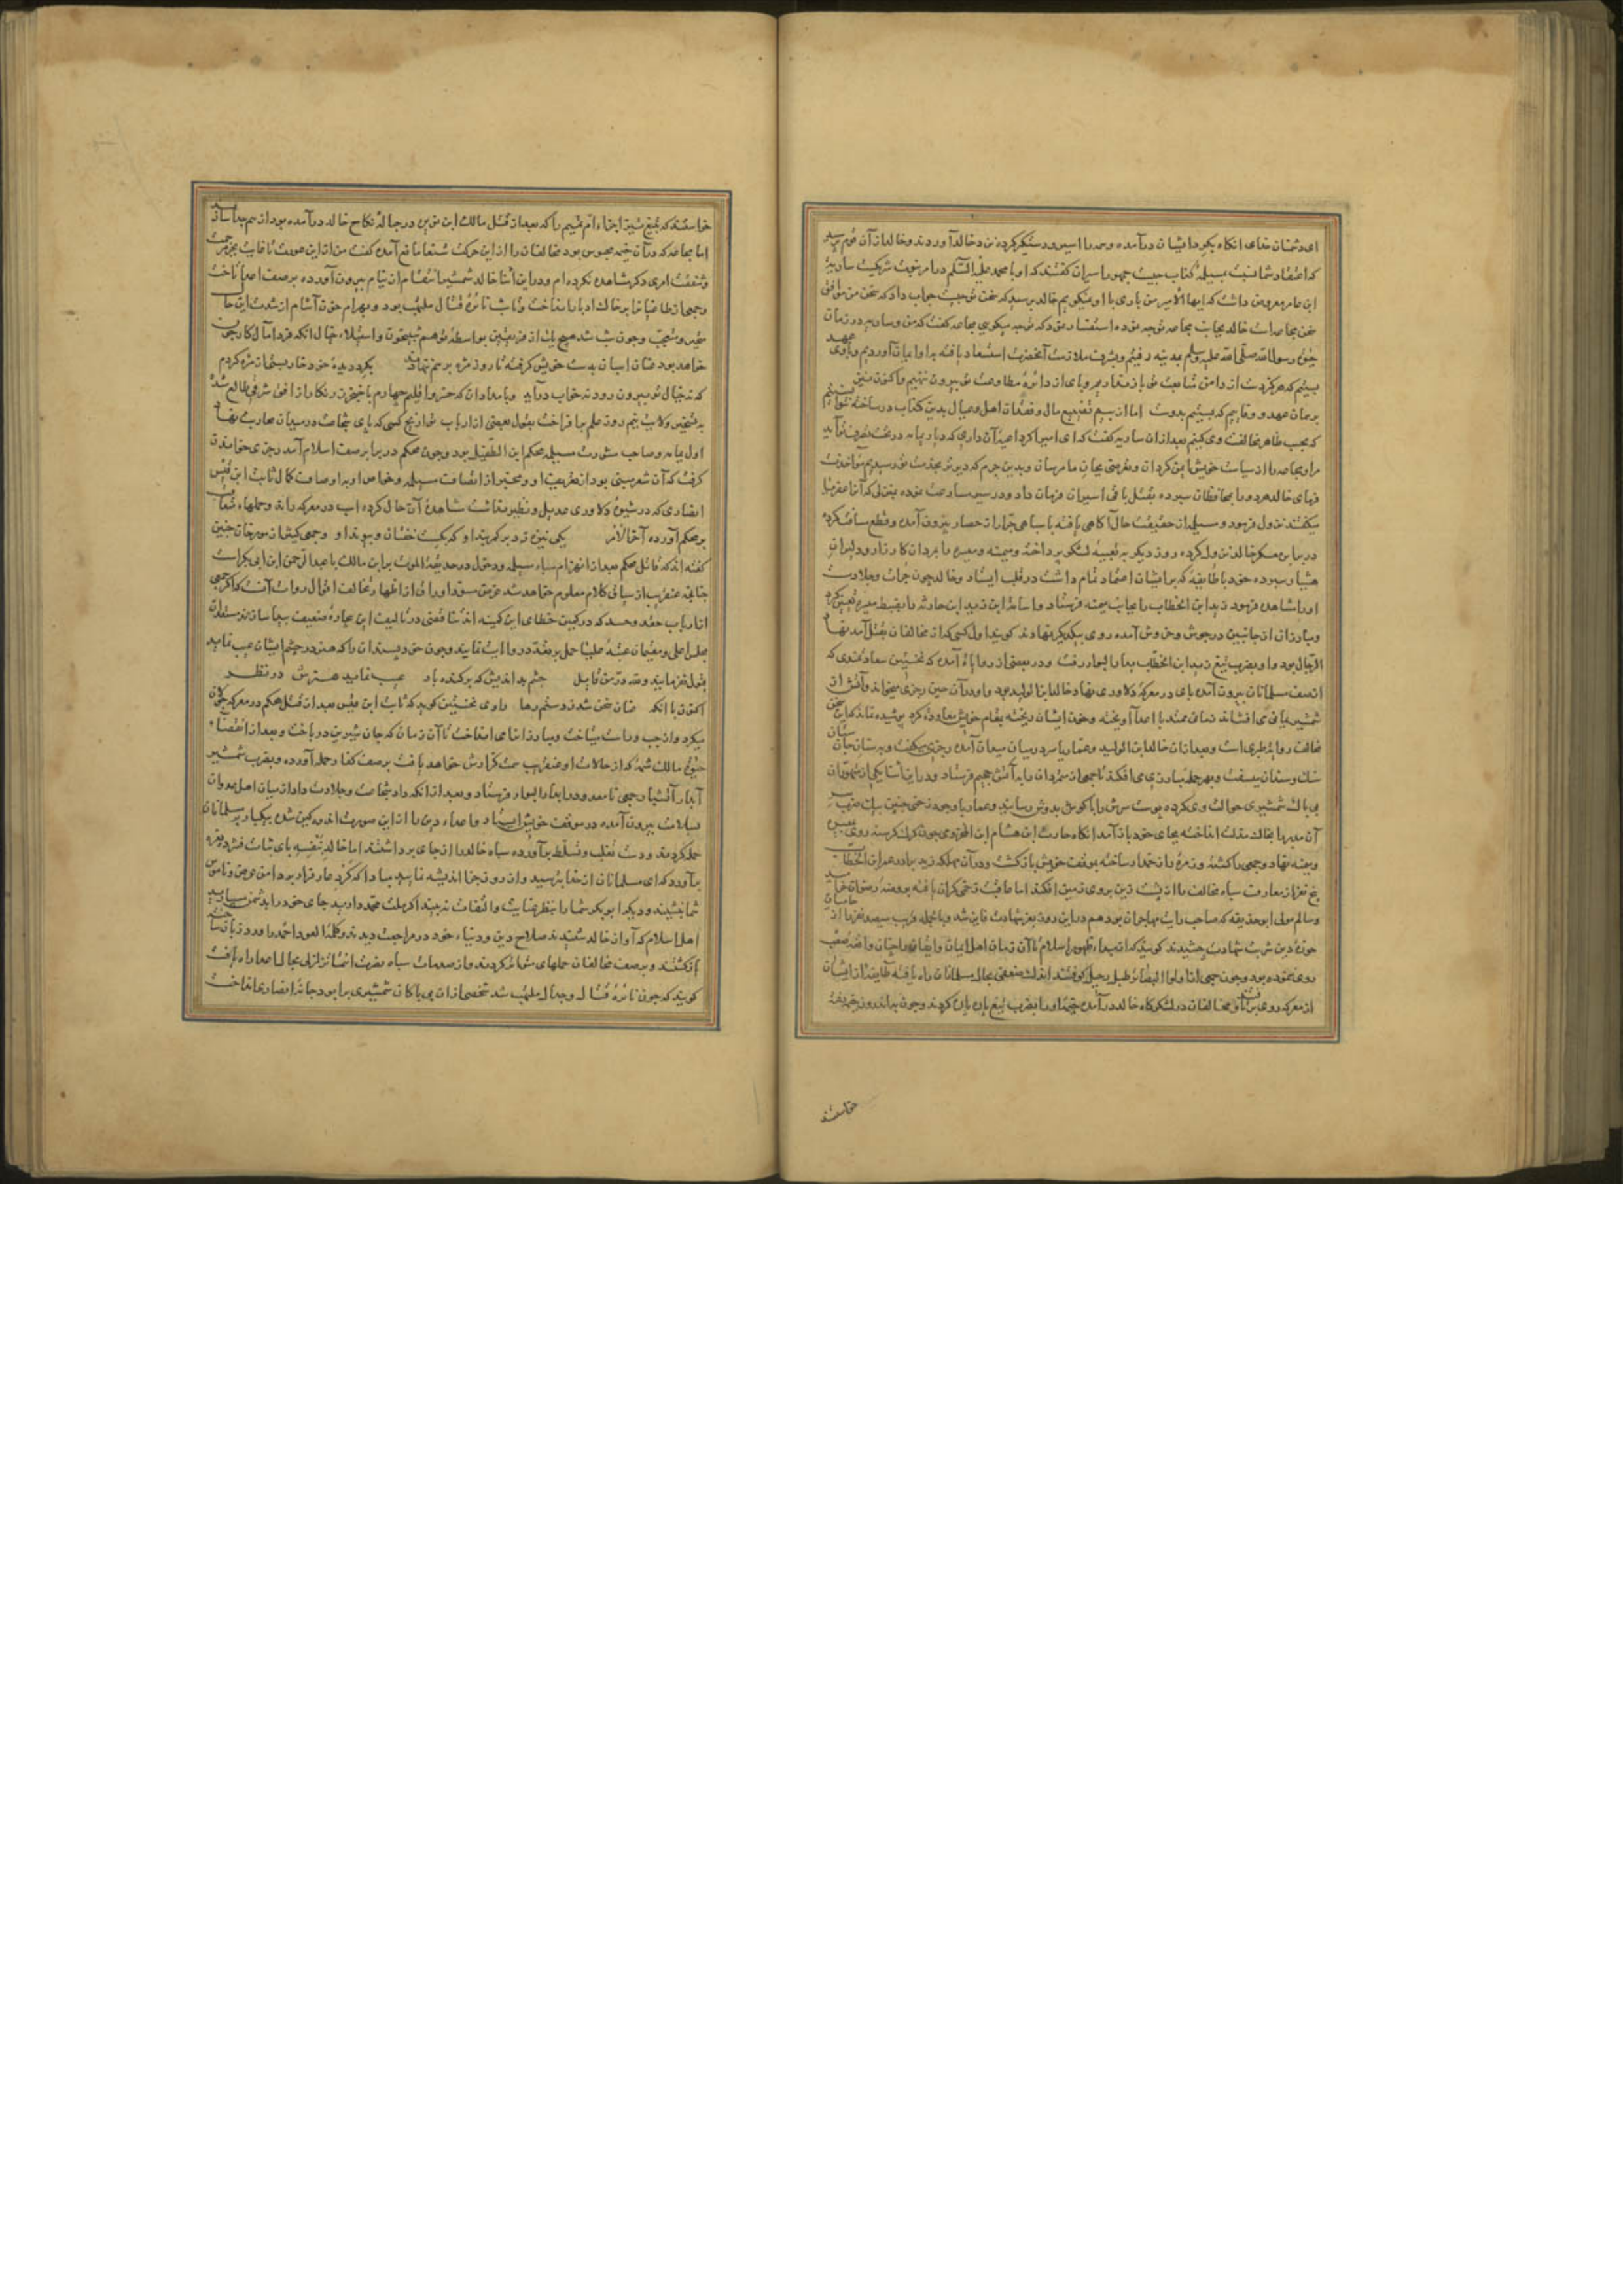 ای دشمنان خدای انکاه بکرد ایشان درآمده وهمه را اسیر ودستکیر کرده نزد خالد آوردند وخالد از آن قوم پرسید
که اعتقاد شما نسبت بمسیلمه کذاب چیست جمهور اسیران کفتند که او با محمد علیه السلم در امر نبوت شریکست ساریة
ابن عامر معروض داشت که ایها الامیر من باری با او نمیکویم خالد پرسید که سخن تو چیست جواب داد که سخن من موافق
سخن مجاعه است خالد بجانب مجاعه توجه نموده استفسار نمود که تو چه میکویی مجاعه کفت که من وساریه در زمان
حیوة رسول الله صلی الله علیه وسلم بمدینه رفتیم وبشرف ملازمت آنحضرت استسعاد یافته بدو ایمان آوردیم وباوی عهد
بستیم که هرکز دست از دامن متابعت تو باز نداریم وپای از دایرۀ مطاوعت تو بیرون ننهیم واکنون نیز
بر همان عهد وقاییم که بستیم بدوست اما از بیم تضییع مال وفضلات اهل وعیال بدین کذاب در ساخته نتوانستیم
که بحسب ظاهر مخالفت وی کنیم بعد از آن ساریه کفت که ای امیر اکر داعیۀ آن داری که دیار یمامه در تحت تصرف تو آید
مرا ومجاعه را از سیاست خویش ایمن کردان
فرمای خالد هردو را بمحافظان سپرده بقتل باقی اسیران فرمان داد ودر سیر مسارعت نموده بمنزلی که آنرا عقربا
میکفتند نزول فرمود ومسیلمه از حقیقت حال آکاهی یافته با سپاهی جرار از حصار بیرون آمده وقطع مسافت کرده
در برابر معسکر خالد نزول کرده روز دیکر بتعبیۀ لشکر پرداخته ومیمنه ومیسره را بمردان کارزار ودلیران
هشیار سپرده خود با طایفه که بر ایشان اعتماد تمام داشت در قلب ایستاد وخالد چون جرأت وجلادت
او را مشاهده فرمود زید ابن الخطاب را بجانب میمنه فرستاد واسامة ابن زید ابن حارثه را بضبط میسره تعیین کرد
ومبارزان از جانبین در جوش وخروش آمده روی بیکدیکر نهادند کویند اول کسی که از مخالفان بقتل آمد نهار
الرجال بود واو بضرب تیغ زید ابن الخطاب بدار البوار رفت ودر بعضی از روایات آمده که نخستین سعادتمندی که
از صف مسلمانان بیرون آمده پای در معرکۀ دلاوری نهاد خالد ابن الولید بود واو در آن حین رجزی میخواند وآتش از
شمشیر یمانی می افشاند زمان ممتد با اعدا آویخته وخون ایشان ریخته بمقام خویش معاودت کرد پوشیده نماند که این سخن
مخالف روایۀ طبری است وبعد از آن خالد ابن الولید وعمار یاسر در میان میدان آمده رجزی میکفت وبر سنان جان ستان
آن مدبر را بخاک مذلت انداخته بجای خود باز آمد انکاه حارث ابن هشام ابن المخزومی چون کرک کرسنه روی بمیسره
ومیمنه نهاد وجمعی را کشته وزمرۀ را زخمدار ساخته بموقف خویش باز کشت ودر آن مهلکه زید برادر عمر ابن الخطاب
وسالم مولی ابو حذیفه که صاحب رایت مهاجران بود هم در این روز بعز شهادت فایز شد وبالجمله قریب سیصد نفر از حامیان
حوزۀ دین شربت شهادت چشیدند کویند که از مبداء ظهور اسلام تا آن زمان اهل ایمان وایقان را چنان واقعۀ صعب
روی ننموده بود وچون جمعی از اولوا البصایر طبل رحیل کوفتند اندک ضعفی بحال مسلمانان راه یافته طایفۀ از ایشان
از معرکه روی بر تافته مخالفان در لشکرکاه خالد درآمده خیمۀ او را بضرب تیغ پاره پاره کردند وچون بدرون خیمه رفته
خواستند
خواستند که بتیغ تیز اجزاء ام تمیم را که بعد از قتل مالک ابن نویره در حبالۀ نکاح خالد درآمده بود از هم جدا سازند
اما مجاعه که در آن خیمه محبوس بود مخالفان را از این حرکت شنعا مانع آمده کفت من از این عورت تا غایت بجز مرحمت
وشفقت امری دیکر مشاهده نکرده ام ودر این اثنا خالد شمشیر انتقام از نیام بیرون آورده بر صف اعدا تاخت
وجمعی از طاغیان را بر خاک ادبار انداخت وتا شب نائرۀ قتال ملتهب بود وبهرام خون آشام از شدت این حال
متحیر ومتعجب وچون شب شد هیچ یک از فریقین بواسطۀ توهم شبیخون واستیلاء خیال آنکه فردا مآل کار چون
خواهد بود عنان اسبان بدست خویش کرفته تا روز مژه بر هم ننهادند بکرد دیدۀ خود خار بستم از مژه کردم
که نه خیال تو بیرون رود نه خواب درآید وبامدادان که خسرو اقلیم چهارم با خنجر زرنکار از افق شرقی طالع شده
به تسخیر ولایت نیم روز علم بر افراخت بقول بعضی از ارباب تواریخ کسی که پای شجاعت در میدان محاربت نهاد
اول یمامه وصاحب مشورت مسیلمه محکم ابن الطفیل بود وچون محکم در برابر صف اسلام آمد رجزی خواندن
کرفت که آن شعر مبنی بود از تعریف او ومحتوی از اتصاف مسیلمه وخواص او بداوصاف کمال ثابت ابن قیس
انصاری که در شیوۀ دلاوری عدیل ونظیر نداشت مشاهدۀ آن حال کرده اسب در معرکه راند وحملهاء متعاقب
بر محکم آورده آخر الامر یکی نیزه زد بر کمربند او که بکسست خفتان وپیوند او وجمعی کثیر از مورخان چنین
کفته اند که قاتل محکم بعد از انهزام سپاه مسیلمه ودخول در حدیقة الموت براء ابن مالک یا عبد الرحمن ابن ابی بکر است
چنانچه عنقریب از سیاق کلام معلوم خواهد شد
از ارباب حقد وحسد که در کمین خطای این کمینه اند تناقضی در تالیف این بیچارۀ ضعیف پیدا سازند
بقول نغز ولله در من قایل چشم بداندیش که برکنده باد عیب نماید هنرش در نظر
اکنون با آنکه عنان سخن شد ز دستم رها راوی نخستین کوید که ثابت ابن قیس بعد از قتل محکم در معرکه جولان
میکرد واز چپ وراست میتاخت ومبارز از پای می انداخت تا آن زمان که جان شیرین در باخت وبعد از انقضاء
حیوة مالک شمۀ که از حالات او عنقریب سمت کزارش خواهد یافت بر صف کفار حمله آورده وبضرب شمشیر
آبدار آتشبار جمعی نامعدود را بدار البوار فرستاد وبعد از آنکه داد شجاعت وجلادت داد از میان اهل عدوان
بسلامت بیرون آمده در موقف خویش ایستاد واعداء دین را از این صورت کین شده بیکبار بر مسلمانان
حمله کردند ودست تغلب وتسلط برآورده سپاه خالد را از جای برداشتند اما خالد بنفسه پای ثبات فشرده نعره
برآورد که ای مسلمانان از خدا بترسید واز روز جزا اندیشه نمایید مبادا که کرد عار وفرار بر دامن عرض وناموس
شما نشیند ودیکر ابوبکر شما را بنظر عنایت والتفات نه بیند اکر ملت محمد دارید جای خود را بدشمن مسپارید
اهل اسلام که آواز خالد شنیدند صلاح دین ودنیاء خود در مراجعت دیدند وکلمۀ العود احمد را ورد زبان ساخته
بازکشتند وبر صف مخالفان حملهای متواتر کردند واز صدمات سپاه نصرت انتما تزلزلی بحال اعدا راه یافت
کویند که چون نائرۀ قتال وجدال ملتهب شد شخصی از آن بی باکان شمشیری بر ابو دجانۀ انصاری انداخت